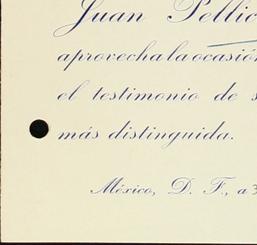 Juan Pellic
aprovecha la ocasión
el testimonio de s
más distinguida.
México, D. F., a 3